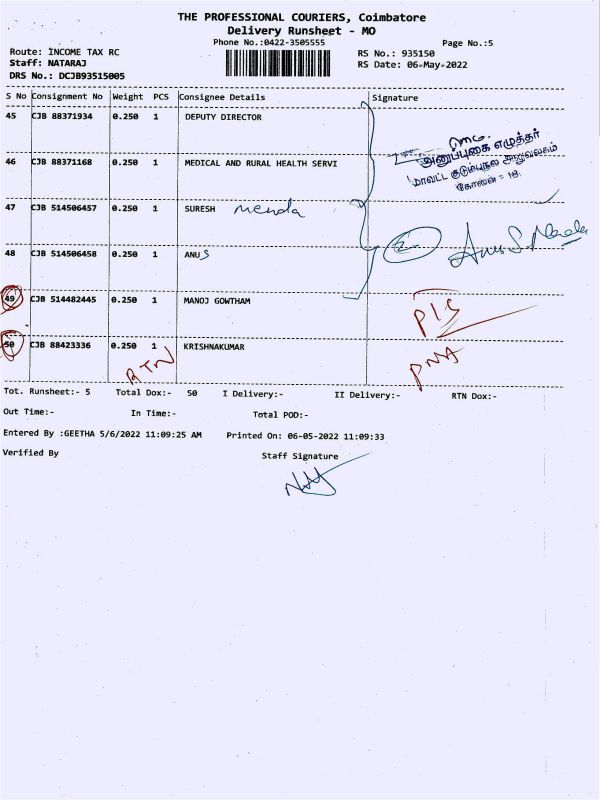 THE PROFESSIONAL COURIERS, Coimbatore
Delivery Runsheet - MO
Phone No.:0422-3505555
Page No.:5
Route: INCOME TAX RC
RS No.: 935150
Staff: NATARAJ
RS Date: 06-May-2022
DRS No.: DCJB93515005
S No Consignment No Weight PCS Consignee Details Signature
45 CJB 88371934 0.250 1 DEPUTY DIRECTOR
அனுப்புகை எழுத்தர்
46 CJB 88371168 0.250 1 MEDICAL AND RURAL HEALTH SERVI
மாவட்ட குடும்பநல அலுவலகம்
கோவை - 18.
47 CJB 514506457 0.250 1 SURESH
48 CJB 514506458 0.250 1 ANU S
49 CJB 514482445 0.250 1 MANOJ GOWTHAM
50 CJB 88423336 0.250 1 KRISHNAKUMAR
RTN
Tot. Runsheet:- 5 Total Dox:- 50 I Delivery:- II Delivery:- RTN Dox:-
Out Time:- In Time:- Total POD:-
Entered By :GEETHA 5/6/2022 11:09:25 AM Printed On: 06-05-2022 11:09:33
Verified By Staff Signature